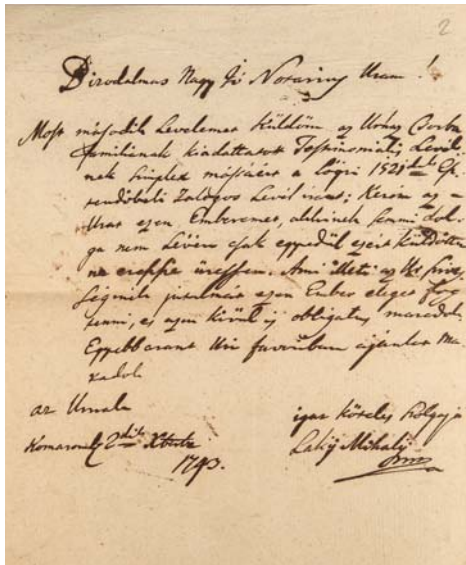 2
Birodalmas Nagy Jó Notarius Uram !
Most második Levelemet küldöm az Urhoz Csorba
familiának kiadattatott Testimonialis Levél-
nek simplex mássáért a 1521
rendőbeli Zálogos Levél iránt; Kérem az
Urat ezen Emberemet, akinek semmi dol-
ga nem lévén csak egyedül ezért küldöttem
ne eressze üressen. Ami illeti az Ur
séginek jutalmát ezen Ember eleget fog
tenni, és azon kivül is obligatus maradok
Egyebbaránt Uri favoriban ajánlva ma-
radok
az Urnak
igaz köteles szolgája
Komarom 2dik Xbris
Laky Mihaly
1793.